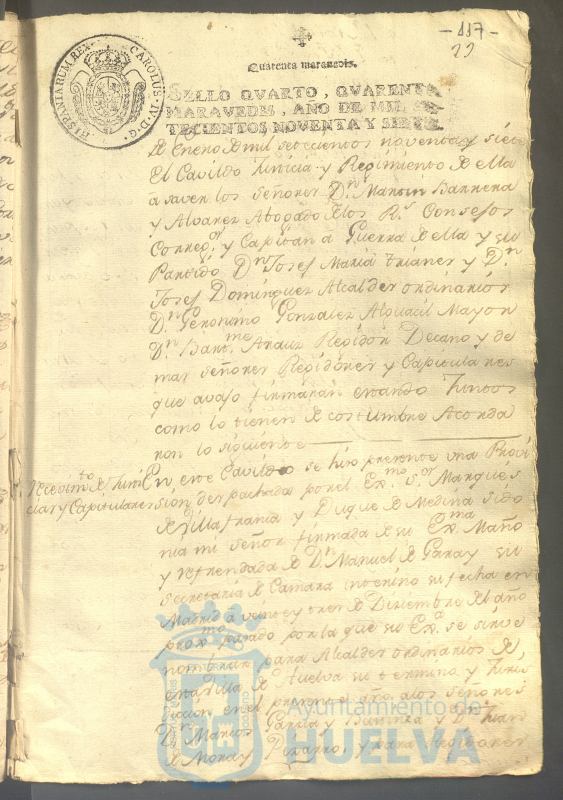 -117-
23
Quarenta maravedis.
HISPANIARUM REX CAROLUS IV D.G.
SELLO QVARTO, QVARENTA
MARAVEDIS, AÑO DE MIL SE
TECIENTOS NOVENTA Y SIETE.
de Enero de mil setecientos noventa y siete
el Cavildo Justicia y Regimiento de ella
a saver los señores Dn. Martin Barrera
y Alvarez Abogado de los Rs. Consejos
Correg.or y Capitan a Guerra de ella y su
Partido Dn. Josef Maria trianer y Dn.
Josef Dominguez Alcaldes ordinarios
Dn. Geronimo Gonzalez Alguacil Mayor
Dn. Bartme. Arauz Regidor Decano y de
mas señores Regidores y Capitulares
que avajo firmarán estando Juntos
como lo tienen de costumbre Acorda
ron lo siguiente
Recevim.to de Justi
cias y Capitulares
En este Cavildo se hizo presente una Provi
sion despachada por el Exmo. Sor. Marqués
de Villafranca y Duque de Medina Sido
nia mi señor firmada de su Exma. Maño
y refrendada de Dn. Manuel de Garay su
secretario de Camara interino su fecha en
Madrid a veinte y tres de Diciembre del año
proxmo. pasado por la que su Exa. se sirve
nombrar para Alcaldes ordinarios de
esta Villa de Huelva su termino y Juris
dicion en el presente año a los señores
Dn. Marcos Garcia y Dn. Juan
de Mora y Pizarro, y para Regidores
Ayuntamiento de
HUELVA